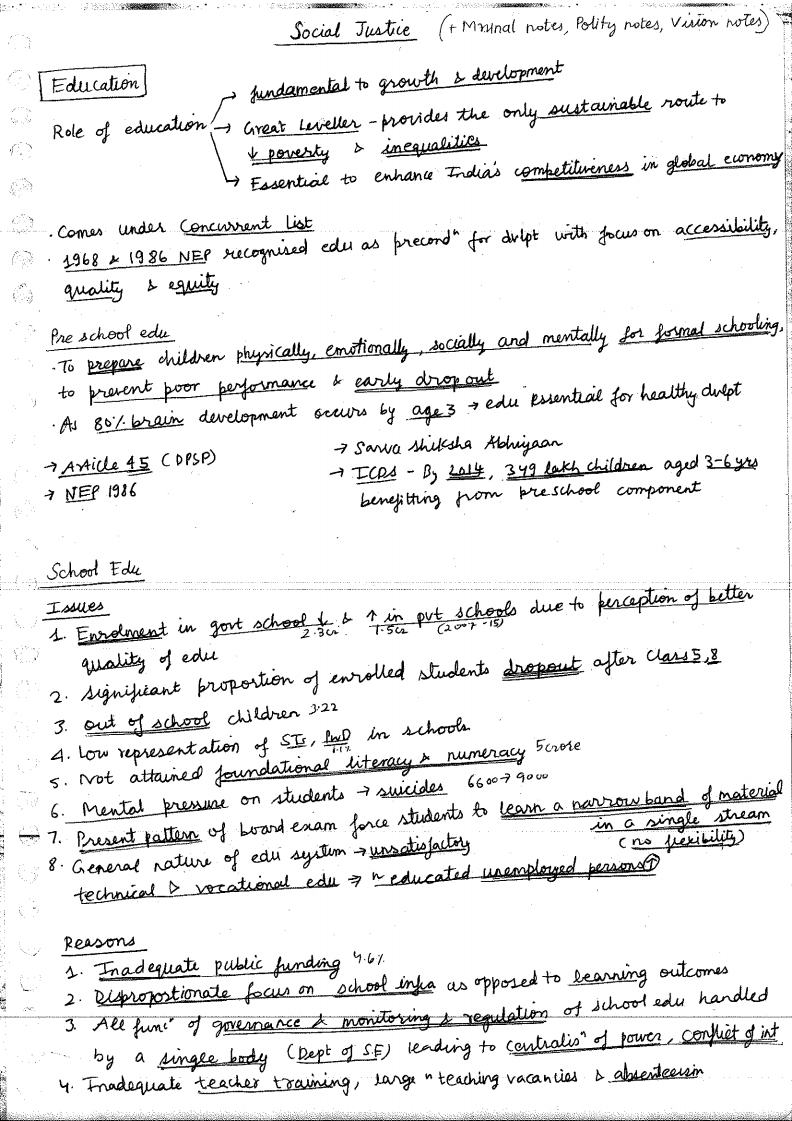 Social Justice (+ Mrunal notes, Polity notes, Vision notes)
Education
→ fundamental to growth & development
Role of education → Great Leveller - provides the only sustainable route to
↓ poverty & inequalities
→ Essential to enhance India's competitiveness in global economy
. Comes under Concurrent List
. 1968 & 1986 NEP recognised edu as precondⁿ for dvlpt with focus on accessibility,
quality & equity
Pre school edu
. To prepare children physically, emotionally, socially and mentally for formal schooling,
to prevent poor performance & early drop out
. As 80% brain development occurs by age 3 → edu essential for healthy dvlpt
→ Article 45 (DPSP)
→ NEP 1986
→ Sarva Shiksha Abhiyaan
→ ICDS - By 2014, 349 lakh children aged 3-6 yrs
benefitting from preschool component
School Edu
Issues
1. Enrolment in govt school ↓ & ↑ in pvt schools due to perception of better
2.3cr 1.5cr (2007-15)
quality of edu
2. Significant proportion of enrolled students dropout after Class 5,8
3. out of school children 3.22
4. Low representation of STs, PwD in schools
1.1%
5. Not attained foundational literacy & numeracy 5 crore
6. Mental pressure on students → suicides 6600 → 9000
7. Present pattern of board exam force students to learn a narrow band of material
in a single stream
(no flexibility)
8. General nature of edu system → unsatisfactory
technical & vocational edu ⇒ ⁿ educated unemployed persons ↑
Reasons
1. Inadequate public funding 4.6%
2. Disproportionate focus on school infra as opposed to learning outcomes
3. All funcⁿ of governance & monitoring & regulation of school edu handled
by a single body (Dept of SE) leading to centralisⁿ of power, conflict of int
4. Inadequate teacher training, large ⁿ teaching vacancies & absenteeism